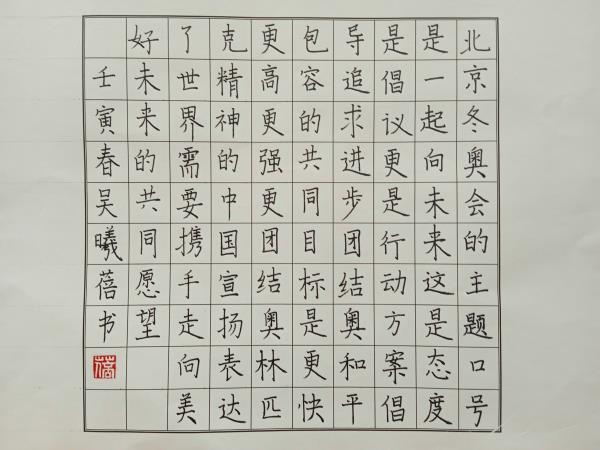 北京冬奥会的主题口号
是一起向未来这是态度
是倡议更是行动方案倡
导追求进步团结奥和平
包容的共同目标是更快
更高更强更团结奥林匹
克精神的中国宣扬表达
了世界需要携手走向美
好未来的共同愿望
壬寅春吴曦蓓书
蓓